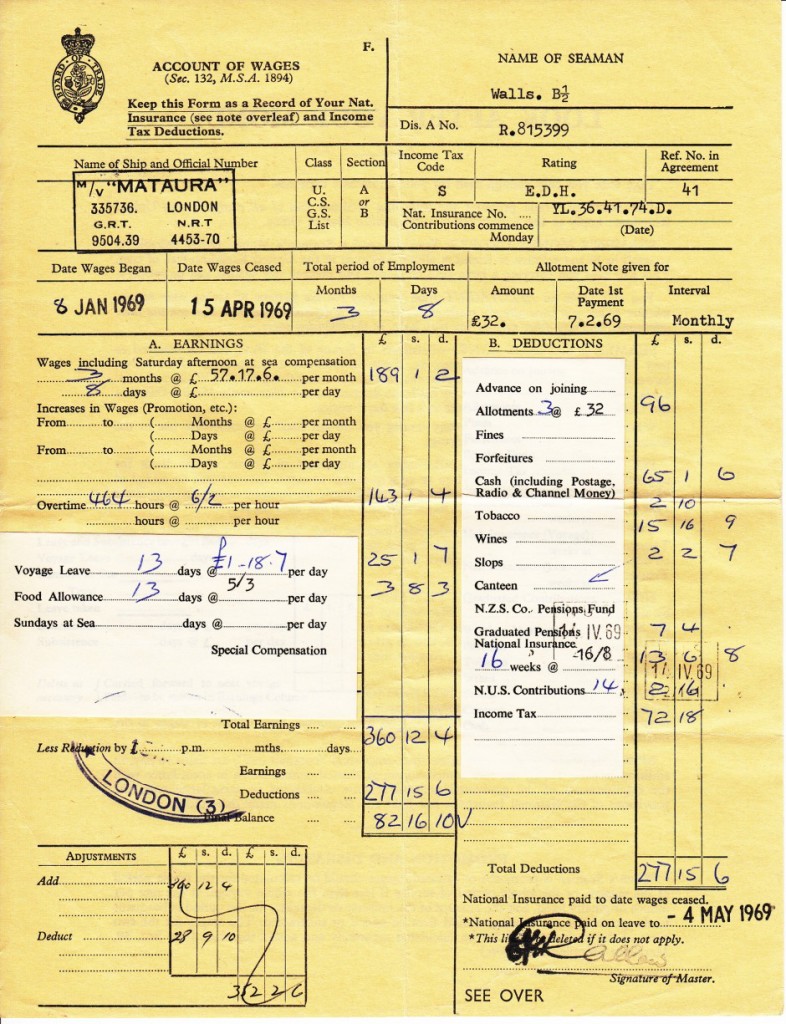 BOARD OF TRADE
F.
ACCOUNT OF WAGES
(Sec. 132, M.S.A. 1894)
Keep this Form as a Record of Your Nat.
Insurance (see note overleaf) and Income
Tax Deductions.
NAME OF SEAMAN
Walls. B½
Dis. A No. R.815399
Name of Ship and Official Number
M/V "MATAURA"
335736. LONDON
G.R.T. N.R.T
9504.39 4453-70
Class Section
U. A
C.S. or
G.S. B
List
Income Tax Code
S
Rating
E.D.H.
Ref. No. in Agreement
41
Nat. Insurance No. .... YL.36.41.74.D.
Contributions commence Monday (Date)
Date Wages Began
8 JAN 1969
Date Wages Ceased
15 APR 1969
Total period of Employment
Months Days
3 8
Allotment Note given for
Amount Date 1st Payment Interval
£32. 7.2.69 Monthly
A. EARNINGS £ s. d.
Wages including Saturday afternoon at sea compensation
3 months @ £ 57.17.6. per month 189 1 2
8 days @ £ per day
Increases in Wages (Promotion, etc.):
From to ( Months @ £ per month
( Days @ £ per day
From to ( Months @ £ per month
( Days @ £ per day
Overtime 464 hours @ 6/2 per hour 143 1 4
hours @ per hour
Voyage Leave 13 days @ £1-18.7 per day 25 1 7
Food Allowance 13 days @ 5/3 per day 3 8 3
Sundays at Sea days @ per day
Special Compensation
Total Earnings .... .... 360 12 4
Less Reduction by p.m. mths. days
Earnings .... ....
Deductions .... .... 277 15 6
Final Balance .... .... 82 16 10
LONDON (3)
B. DEDUCTIONS £ s. d.
Advance on joining
Allotments 3 @ £ 32 96
Fines
Forfeitures
Cash (including Postage, Radio & Channel Money) 65 1 6
Tobacco 2 10
Wines 15 16 9
Slops 2 2 7
Canteen
N.Z.S. Co. Pensions Fund
Graduated Pensions 7 4
National Insurance
16 weeks @ 16/8 13 6 8
14 IV 69
17 IV 69
N.U.S. Contributions 14 2 16
Income Tax 72 18
Total Deductions 277 15 6
ADJUSTMENTS £ s. d. £ s. d.
Add 360 12 4
Deduct 28 9 10
352 2 6
National Insurance paid to date wages ceased.
*National Insurance paid on leave to - 4 MAY 1969
*This line deleted if it does not apply.
Signature of Master.
SEE OVER